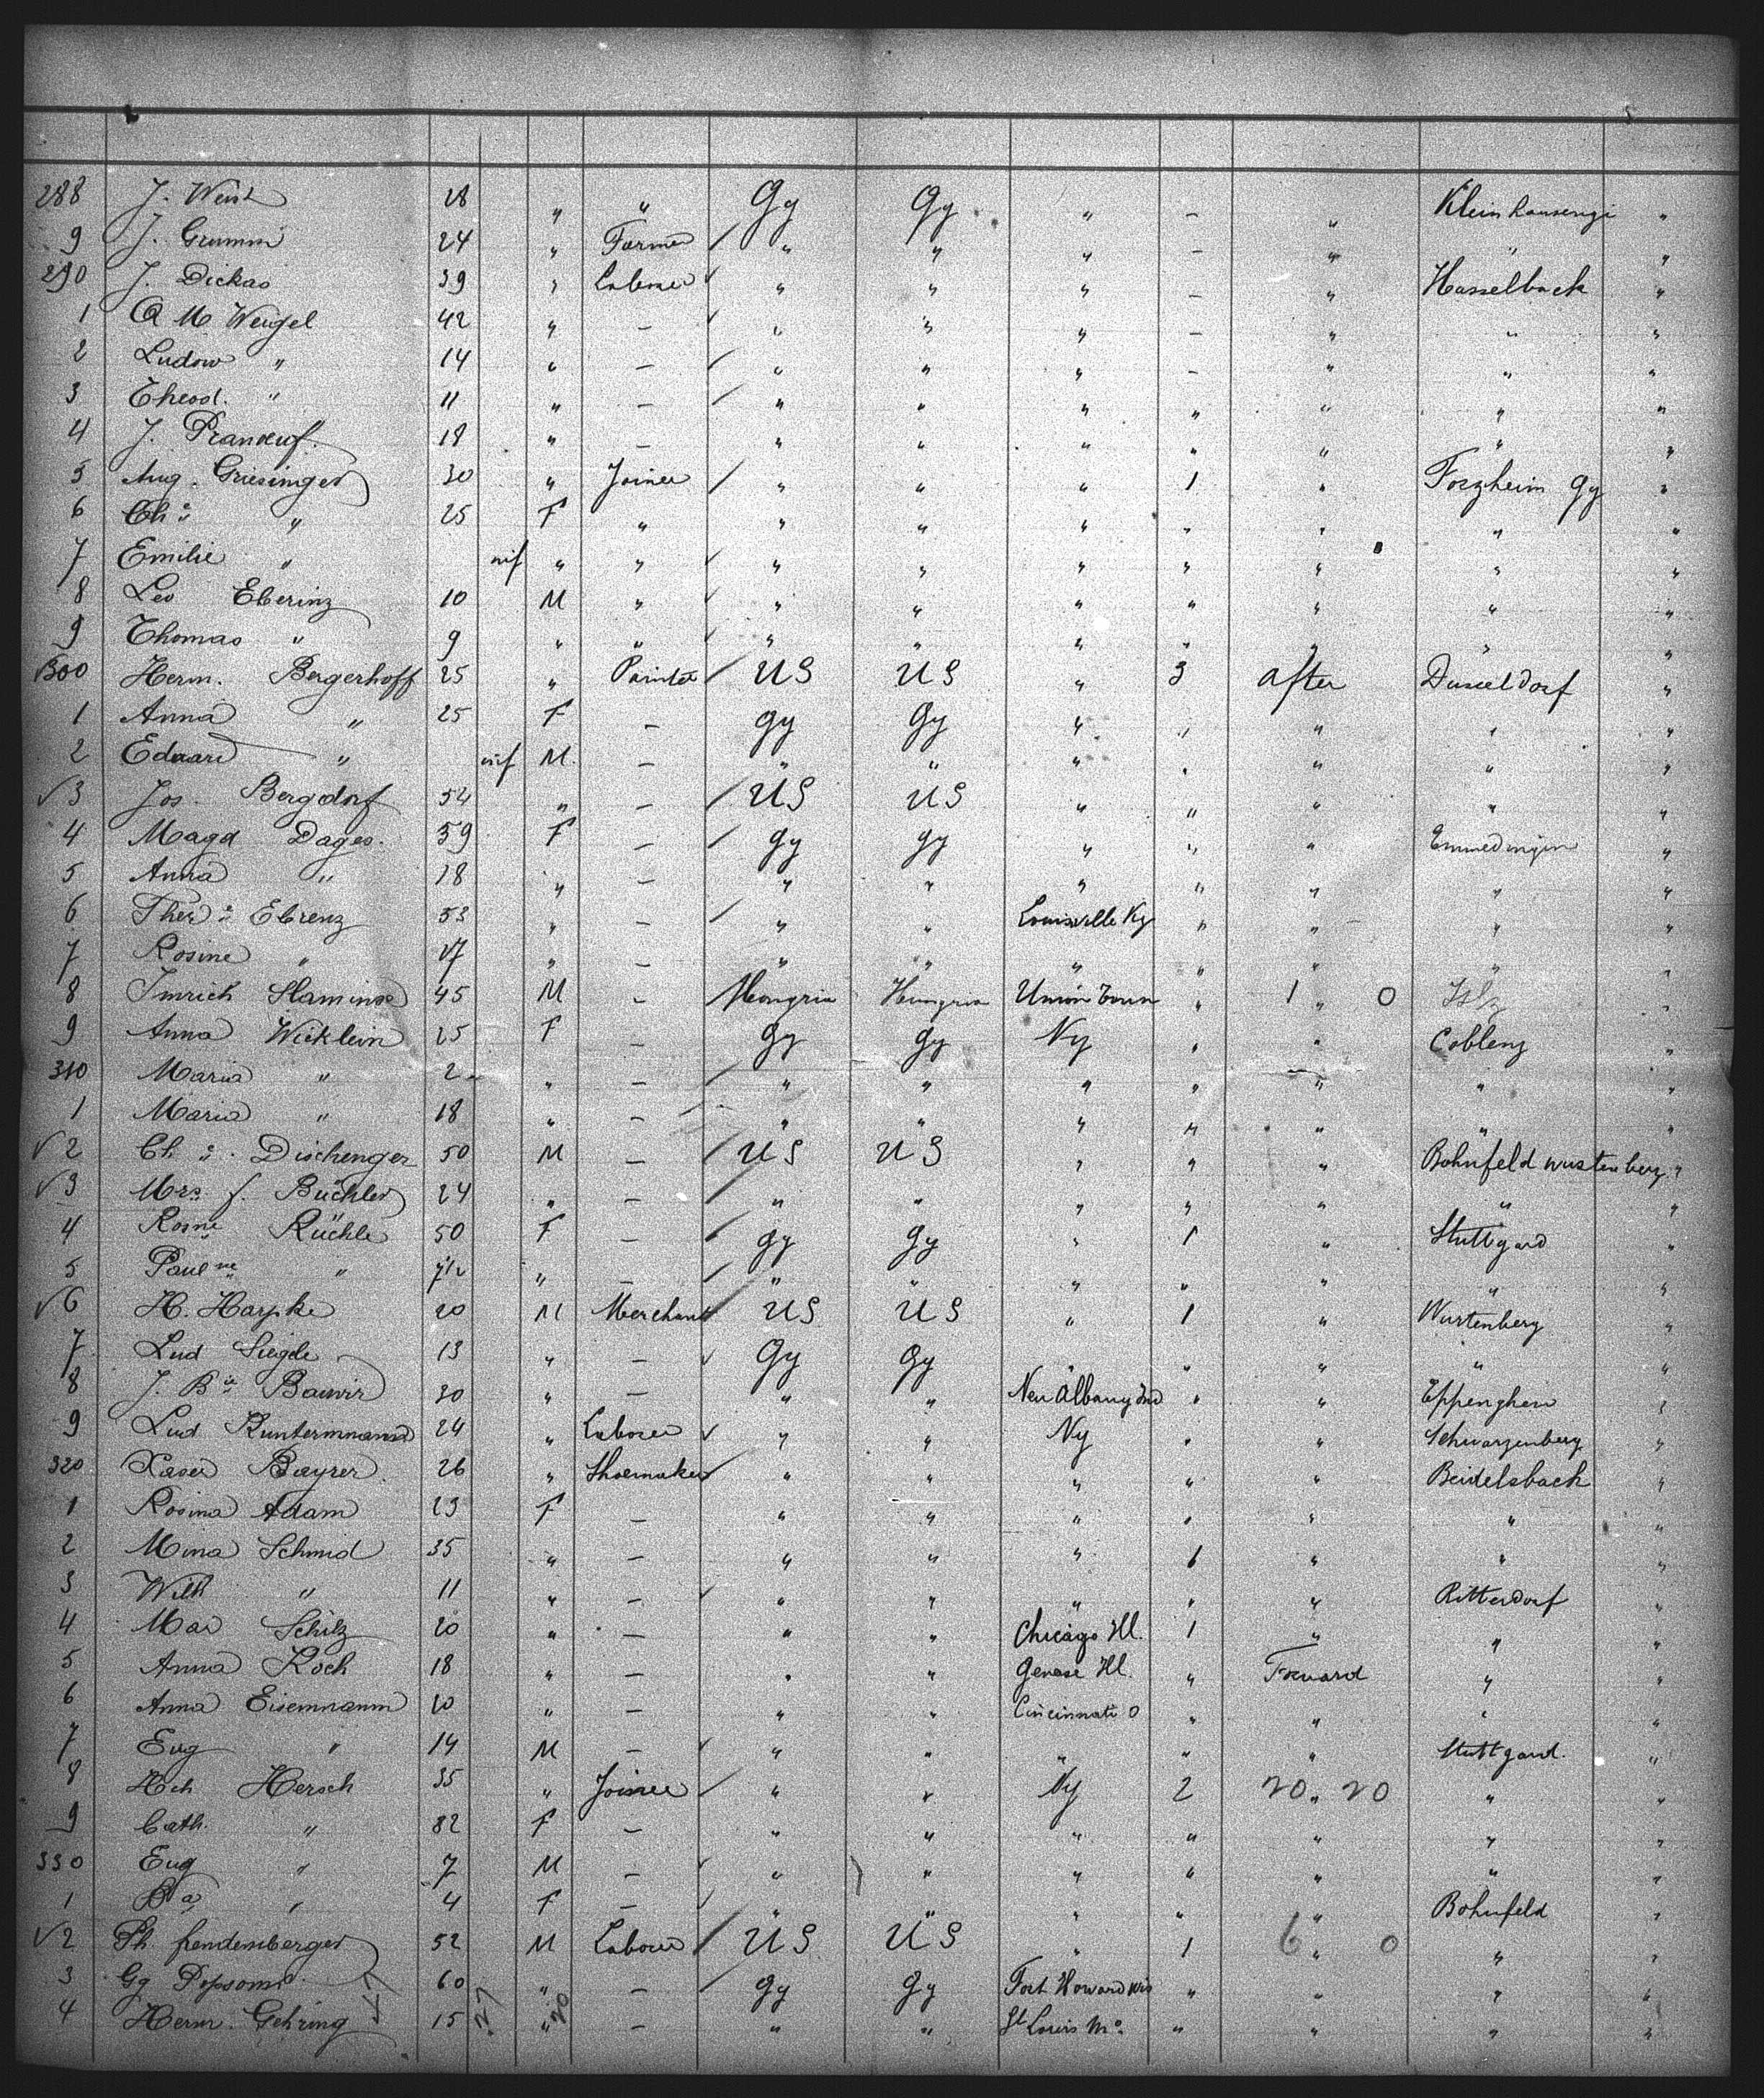 288 J. Weist 28 " " Gy Gy " - " Kleinhausengi "
9 J. Grumm 24 " Farmer / " " " - " " "
290 J. Dickas 39 " Laborer ✓ " " " - " Hasselbach "
1 A M Wengel 42 " - ✓ " " " - " " "
2 Ludow " 14 " - / " " " - " " "
3 Theod. " 11 " - / " " " " " " "
4 J. 18 " - " " " " " " "
5 Aug. Griesinger 30 " Joiner / " " " 1 " Forzheim Gy "
6 Ch: " 25 F " " " " " " " "
7 Emilie " inf " " ✓ " " " " " " "
8 Leo Eberinz 10 M " ✓ " " " " " " "
9 Thomas " 9 " " ✓ " " " " " " "
√300 Herm. Bergerhoff 25 " Painter / US US " 3 after Dusseldorf "
1 Anna " 25 F - Gy Gy " " " " "
2 Edward " inf M. - " " " " " " "
√3 Jos. Bergdorf 54 " - / US US " " " " "
4 Magd Dages. 59 F - / Gy Gy " " " Emmedingen "
5 Anna " 18 " - " " " " " " "
6 Ther: Ebrenz 53 " - / " " Louisville Ky " " " "
7 Rosine " 17 " - " " " " " " "
8 Imrich 45 M - Hongria Hungria Union Town " 1 " 0 "
9 Anna Wicklein 25 F - Gy Gy Ny " " Coblenz "
310 Maria " 2 " - / " " " " " " "
1 Maria " 18 " - " " " " " " "
√2 Ch: Dischenger 50 M - / US US " " " Bohnfeld wurtenberg "
√3 Mrs f. Büchler 24 " - / " " " " " " "
4 Rosne Rüchle 50 F - / Gy Gy " 1 " Stuttgard "
5 Paulne " " - / " " " " " " "
√6 H. Harpke 20 M Merchant / US US " 1 " Wurtenberg "
7 Lud Siegle 13 " - ✓ Gy Gy " " " " "
8 J. Bte 30 " - " " New Albany Ind " " Eppenghen "
9 Lud Kuntermann 24 " Laborer ✓ " " Ny " " Schwarzenberg "
320 Xaver Bayrer 26 " Shoemaker / " " " " " Beidelsbach "
1 Rosina Adam 23 F - " " " " " " "
2 Mina Schmid 35 " - " " " 1 " " "
3 Wilh " 11 " - ✓ " " " " " Ritterdorf "
4 Mar Schilz 20 " - " " Chicago Ill. 1 " " "
5 Anna Koch 18 " - " " Genese Ill. " Forward " "
6 Anna Eisenmann 20 " - " " Cincinnati O " " " "
7 Eug " 14 M - ✓ " " " " " Stuttgard. "
8 Hch Hersch 35 " Joiner / " " Ny 2 20 " 20 " "
9 Cath. " 32 F - " " " " " " "
330 Eug " 7 M - ✓ " " " " " " "
1 Ba " 4 F - ✓ " " " " " Bohnfeld "
√2 Ph. fendenberger 52 M Laborer / US US " 1 6 " 0 " "
3 Gg 60 " - / Gy Gy Fort Howard Wis " " " "
4 Herm. Gehring 15 " - " " St Louis Mo. " " " "
27 20